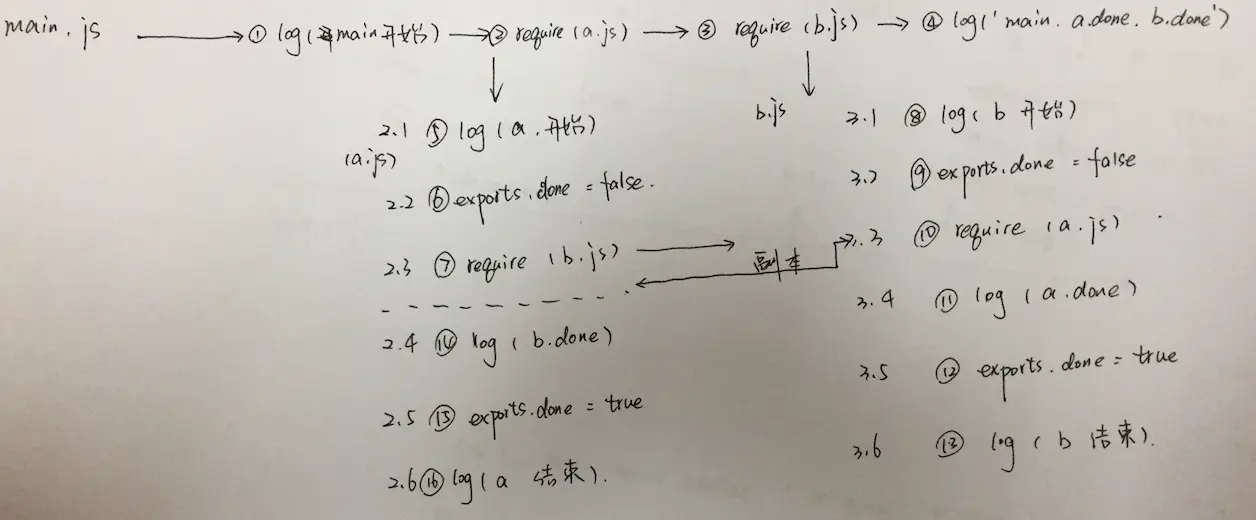 main.js ① log(main开始) ② require(a.js) ③ require(b.js) ④ log('main. a.done. b.done')
2.1 ⑤ log(a.开始)
(a.js)
2.2 ⑥ exports.done = false.
2.3 ⑦ require(b.js)
2.4 ⑭ log(b.done)
2.5 ⑮ exports.done = true
2.6 ⑯ log(a 结束).
副本
b.js
3.1 ⑧ log(b 开始)
3.2 ⑨ exports.done = false
3.3 ⑩ require(a.js)
3.4 ⑪ log(a.done)
3.5 ⑫ exports.done = true
3.6 ⑬ log(b 结束).